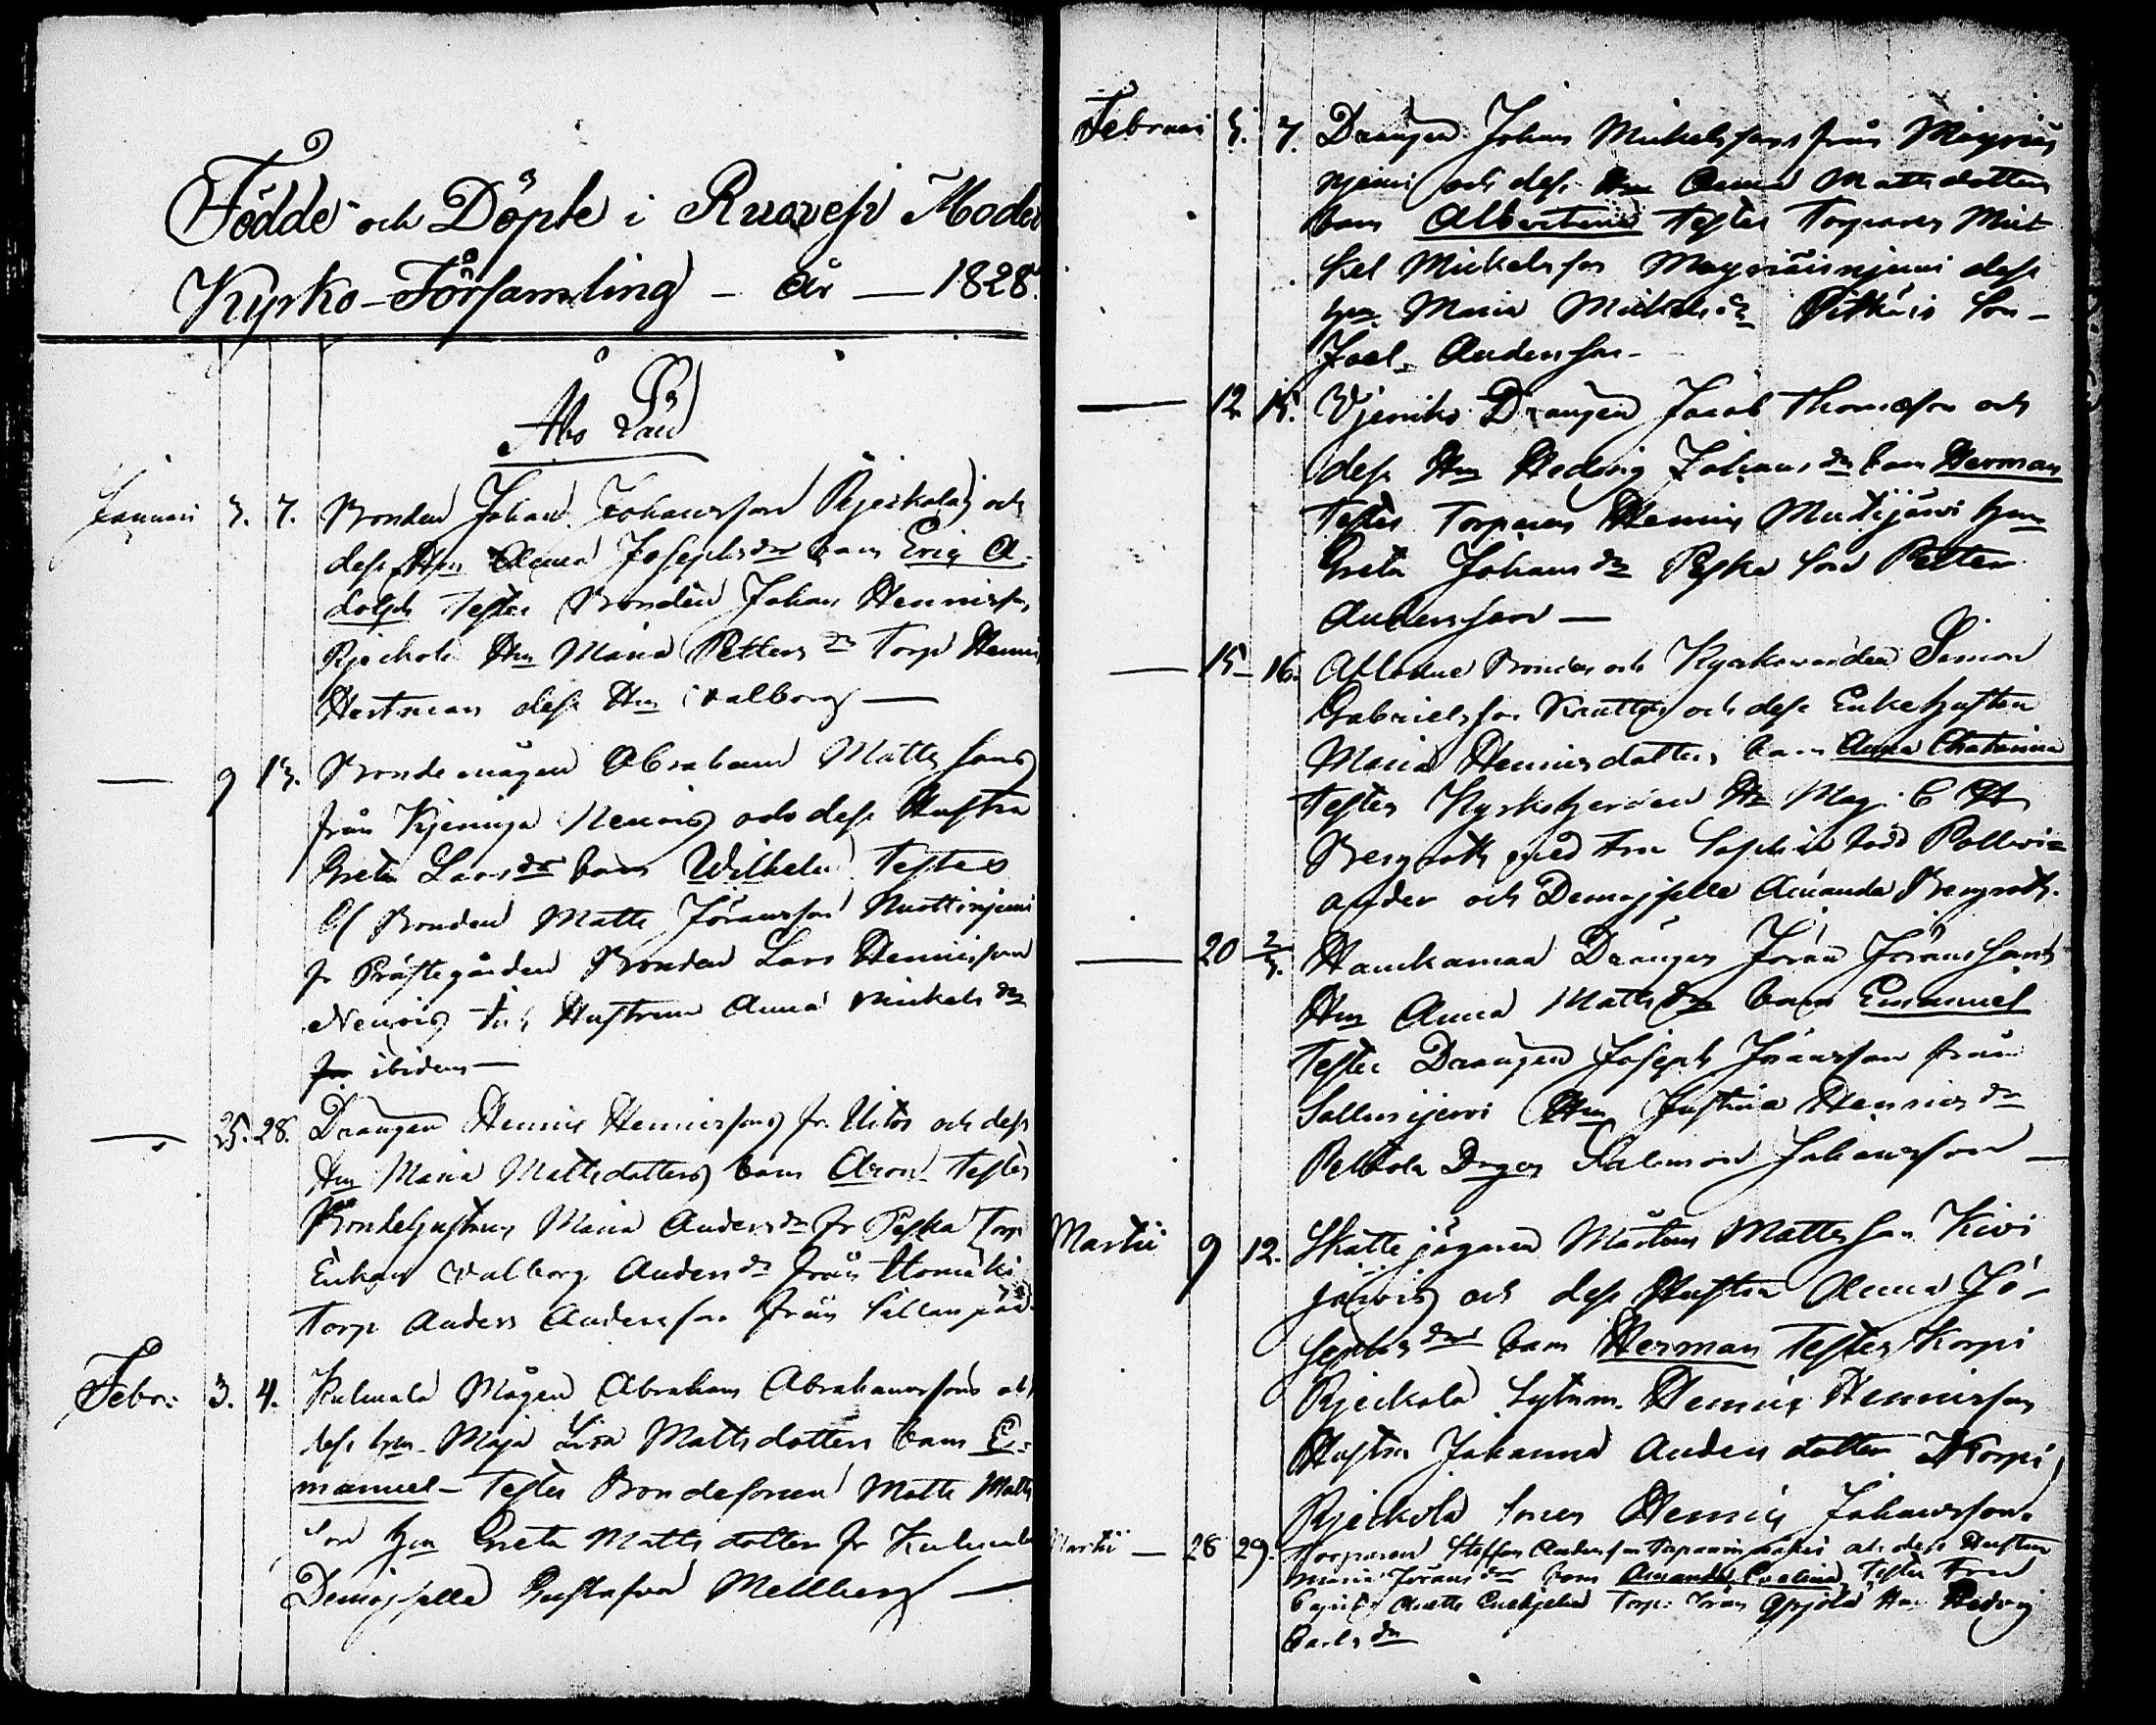 Födde och Döpte i Ruovesi Moder
Kyrko-Församling - År - 1828.
Åbo Län
Januari 3. 7. Bonden Johan Johansson Rjeckolas och
dess Hu Anna Josephsdr barn Eric A-
dolph Testes Bonden Johan Henricsson
Rjeckola Hu Maria Pettersdr Torp Henric
Hertman dess Hu Walborg —
— 9 13. Bondemågen Abraham Mattssons
från Neuvois och dess Hustru
Greta Larsdr barn Wilhelm Testes
Bonden Matts Jöransson
fr Prästegården Bonden Lars Henricsson
Neuvois Hustrun Anna Mickelsdr
ibidem —
— 25. 28. Drängen Henric Henricssons fr. och dess
Hu Maria Mattsdotters barn Aron Testes
Bondehustrun Maria Andersdr fr Peska Torp
Enkan Walborg Andersdr från
Torp Anders Andersson från Sillanpää
Febr: 3. 4. Kulmala Mågen Abraham Abrahamssons och
dess hu Maja Lisa Mattsdotters barn E-
manuel - Testes Bondesonen Matts Matts
son hu Greta Mattsdotter fr Kulmala
Demoiselle Gustafva Mellberg —
Februari 3. 7. Drängen Johan Mickelsson från
niemi och dess Hu Anna Mattsdotters
barn Albertina Testes Torparen Mic
kel Mickelsson dess
hu Maria Mickelsdr son
Joel Andersson
— 12 15. Drängen Jacob Thomasson och
dess Hu Hedvig Johansdr barn Herman
Testes Torparen Henric Mutijärvi hu
Greta Johansdr Peska son Petter
Andersson —
— 15 16. Aflidne Bonden och Kyrkovärden Simon
Gabrielsson Kautto och dess Enkehustru
Maria Henricsdotters barn Anna Chatarina
Testes Kyrkoherden Hr Mag. C H
Bergroth med Fru Sophia född Polvi-
ander och Demoiselle Amanda Bergroth.
— 20 2/3. Drängen Jöran Jöranssons
Hu Anna Mattsdr barn Emanuel
Testes Drängen Joseph Jöransson från
Hu Justina Henricsdr
Pekkola Drgen Salomon Johansson —
Martii 9 12. Skattejägaren Mårten Mattsson Kivi
järvis och dess Hustru Anna Jo-
sephsdrs barn Herman Testes Korpi
Rjeckola Sytnm. Henric Henricsson
Hustru Johanna Andersdotter Korpi
Rjeckola sonen Henric Johansson.
Martii — 28 29. Torparen Steffan Andersson och dess Hustru
Maria Jöransdrs barn Amanda Evelina Testes Fru
Anette Enehjelm Torp: Jöran Hu Hedvig
Carlsdr